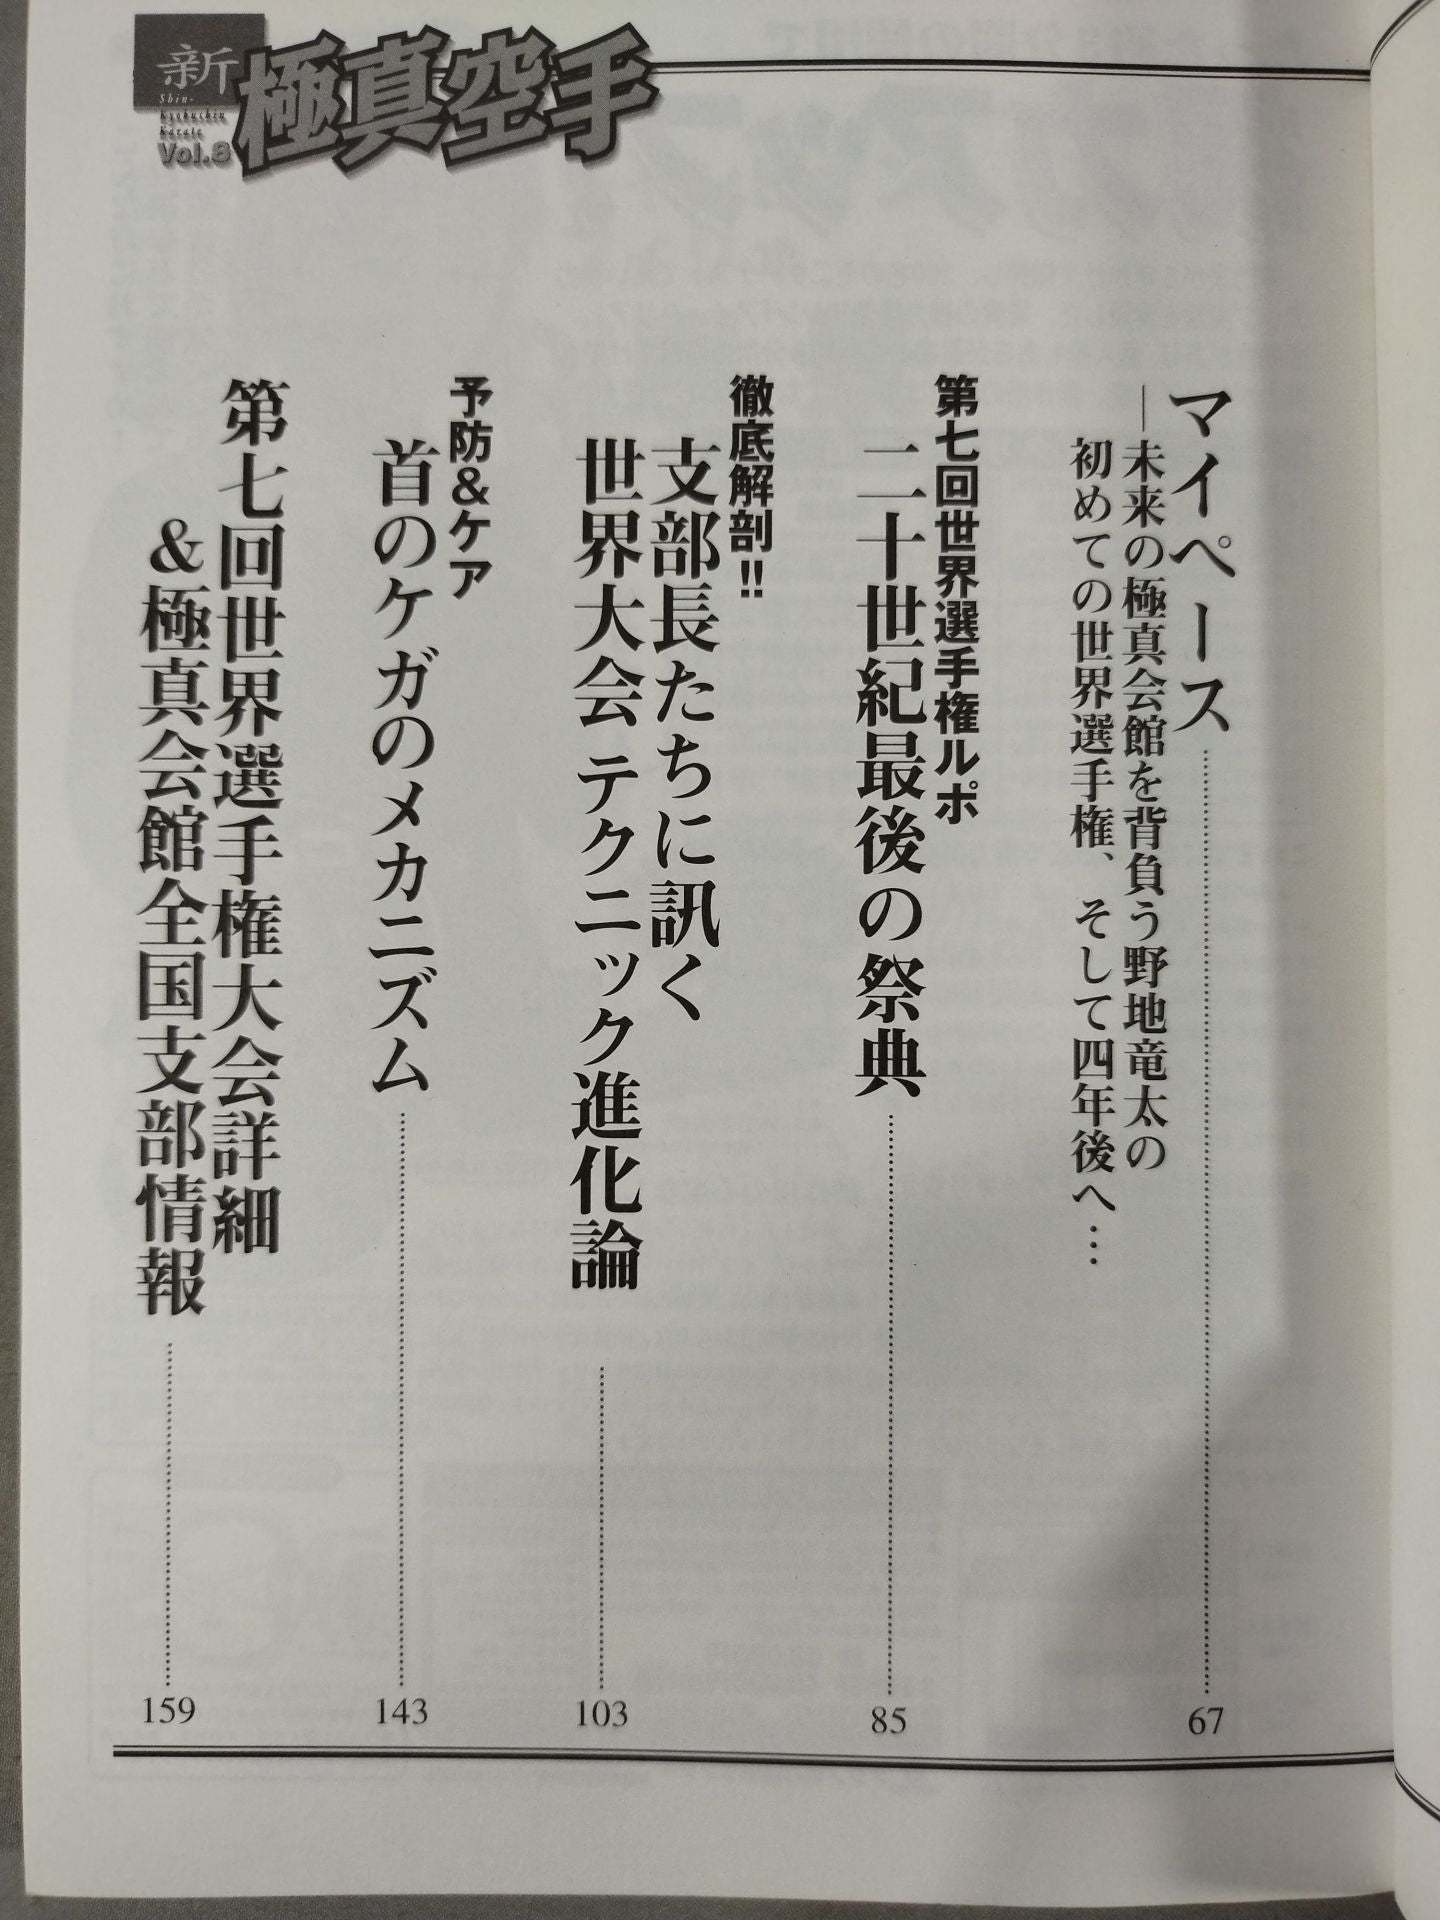 新極真空手
Shin-
kyokushin
karate
Vol.8
マイペース
―未来の極真会館を背負う野地竜太の
初めての世界選手権、そして四年後へ…
67
第七回世界選手権ルポ
二十世紀最後の祭典
85
徹底解剖!!
支部長たちに訊く
世界大会テクニック進化論
103
予防&ケア
首のケガのメカニズム
143
第七回世界選手権大会詳細
&極真会館全国支部情報
159